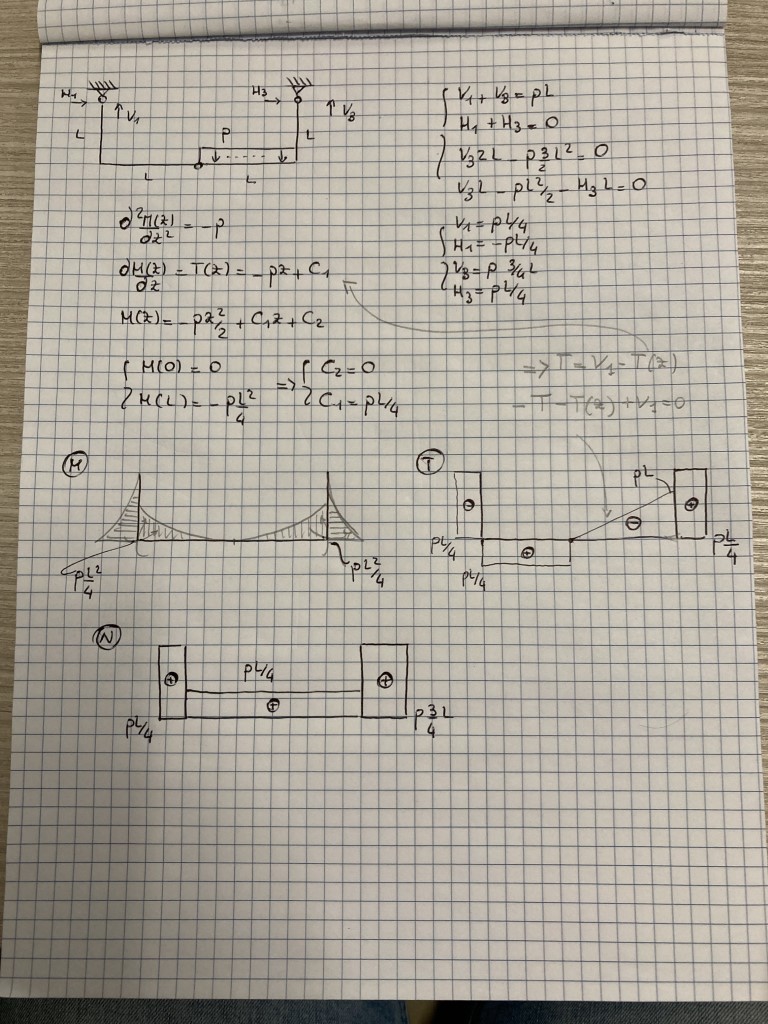 H₁ → ↑ V₁ H₃ → ↑ V₃
L P L
L L
V₁ + V₃ = pL
H₁ + H₃ = 0
V₃2L - p 3/2 L² = 0
V₃L - pL²/2 - H₃L = 0
V₁ = pL/4
H₁ = -pL/4
V₃ = p 3/4 L
H₃ = pL/4
d²M(z)/dz² = -p
dM(z)/dz = T(z) = -pz + C₁
M(z) = -pz²/2 + C₁z + C₂
M(0) = 0 => C₂ = 0
M(L) = -pL²/4 C₁ = pL/4
=> T = V₁ - T(z)
- T - T(z) + V₁ = 0
M
pL²/4 pL²/4
T
pL
+ + - +
pL/4 pL/4
pL/4
N
pL/4
+ + +
pL/4 p 3/4 L